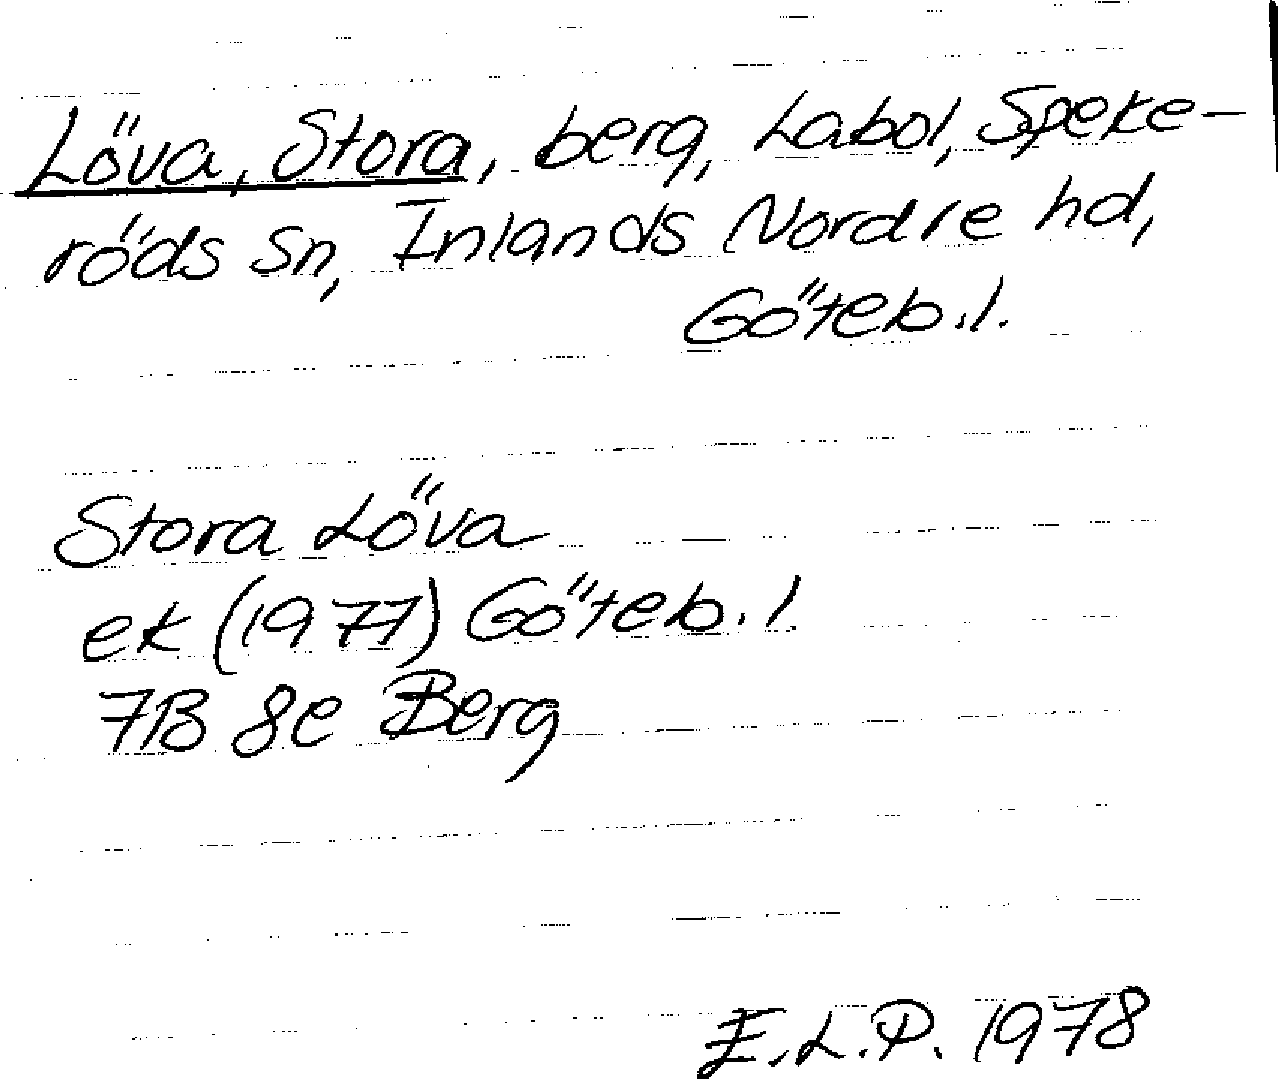 Löva, Stora, berg, Labol, Speke-
röds sn, Inlands Nordre hd,
Göteb.l.
Stora Löva
ek (1977) Göteb.l.
7B 8e Berg
E.L.P. 1978